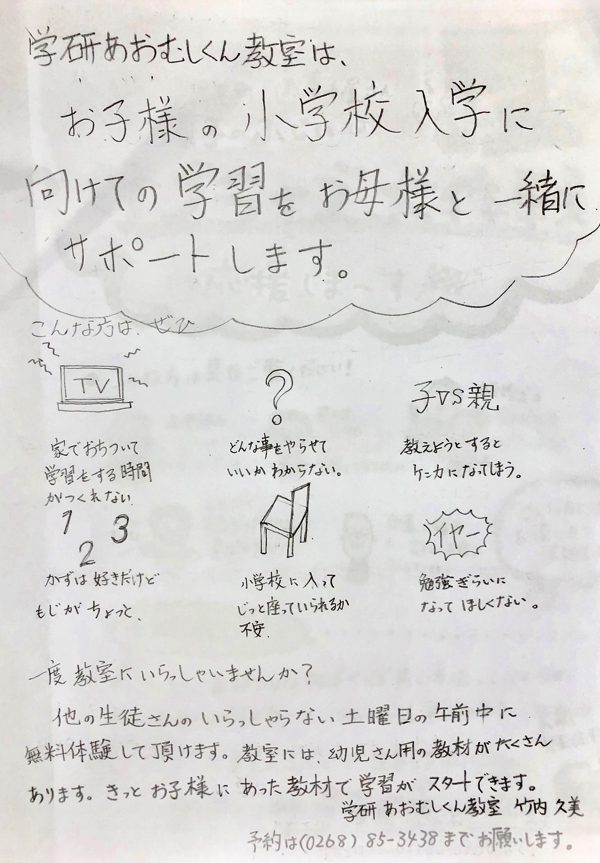 学研あおむしくん教室は、
お子様の小学校入学に
向けての学習をお母様と一緒に
サポートします。
こんな方は、ぜひ
TV
家でおちついて
学習をする時間
がつくれない
?
どんな事をやらせて
いいかわからない。
子VS親
教えようとすると
ケンカになってしまう。
1 2 3
かずは好きだけど
もじがちょっと、
小学校に入って
じっと座っていられるか
不安.
イヤー
勉強ぎらいに
なってほしくない。
一度教室にいらっしゃいませんか?
他の生徒さんのいらっしゃらない土曜日の午前中に
無料体験して頂けます。教室には、幼児さん用の教材がたくさん
あります。きっとお子様にあった教材で学習がスタートできます。
学研あおむしくん教室 竹内久美
予約は(0268)85-3438までお願いします。